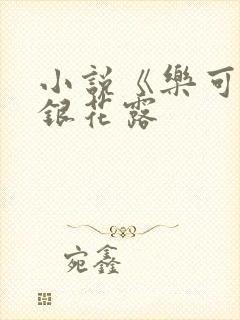 小説《樂可
銀花露
宛鑫